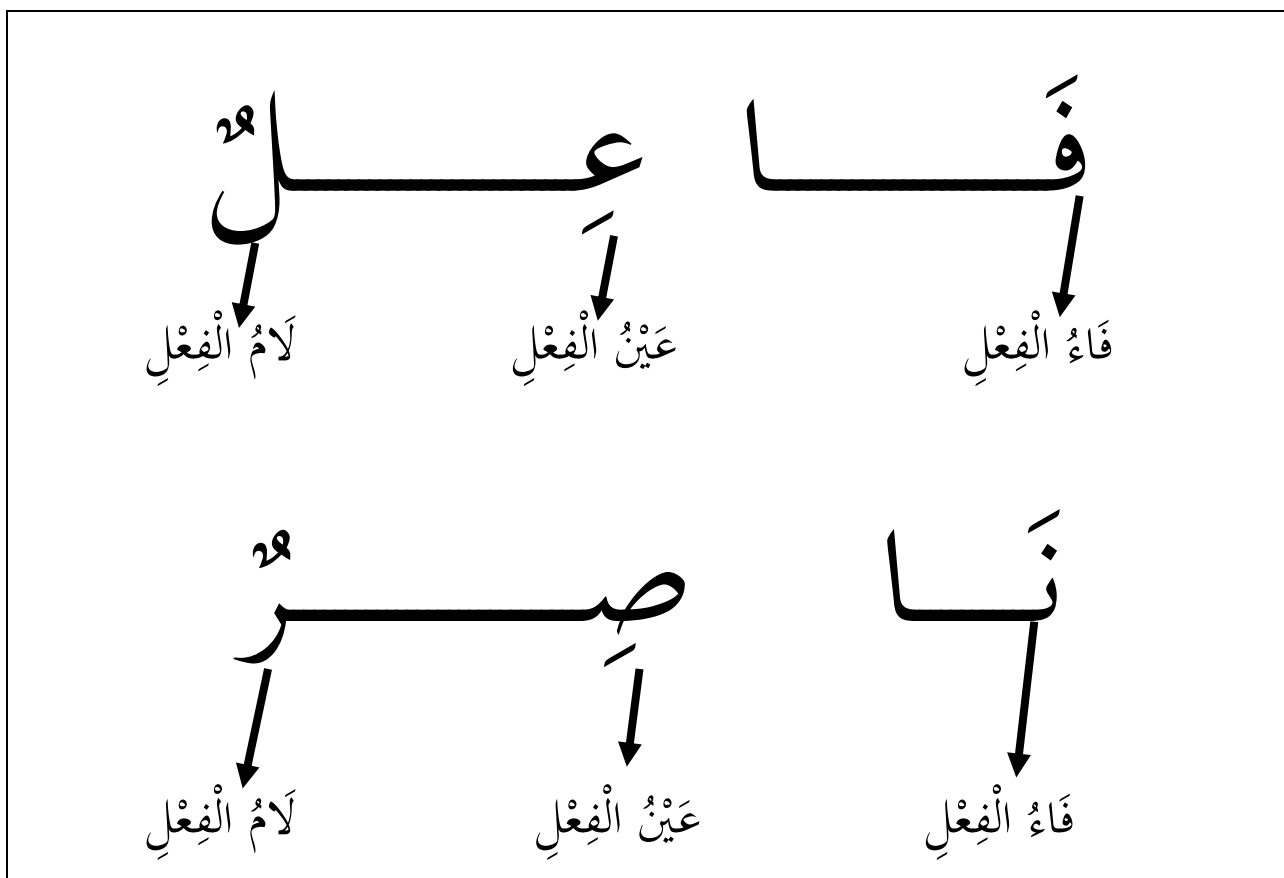 فَـــا عِـــلٌ
فَاءُ الْفِعْلِ عَيْنُ الْفِعْلِ لَامُ الْفِعْلِ
نَـــا صِـــرٌ
فَاءُ الْفِعْلِ عَيْنُ الْفِعْلِ لَامُ الْفِعْلِ